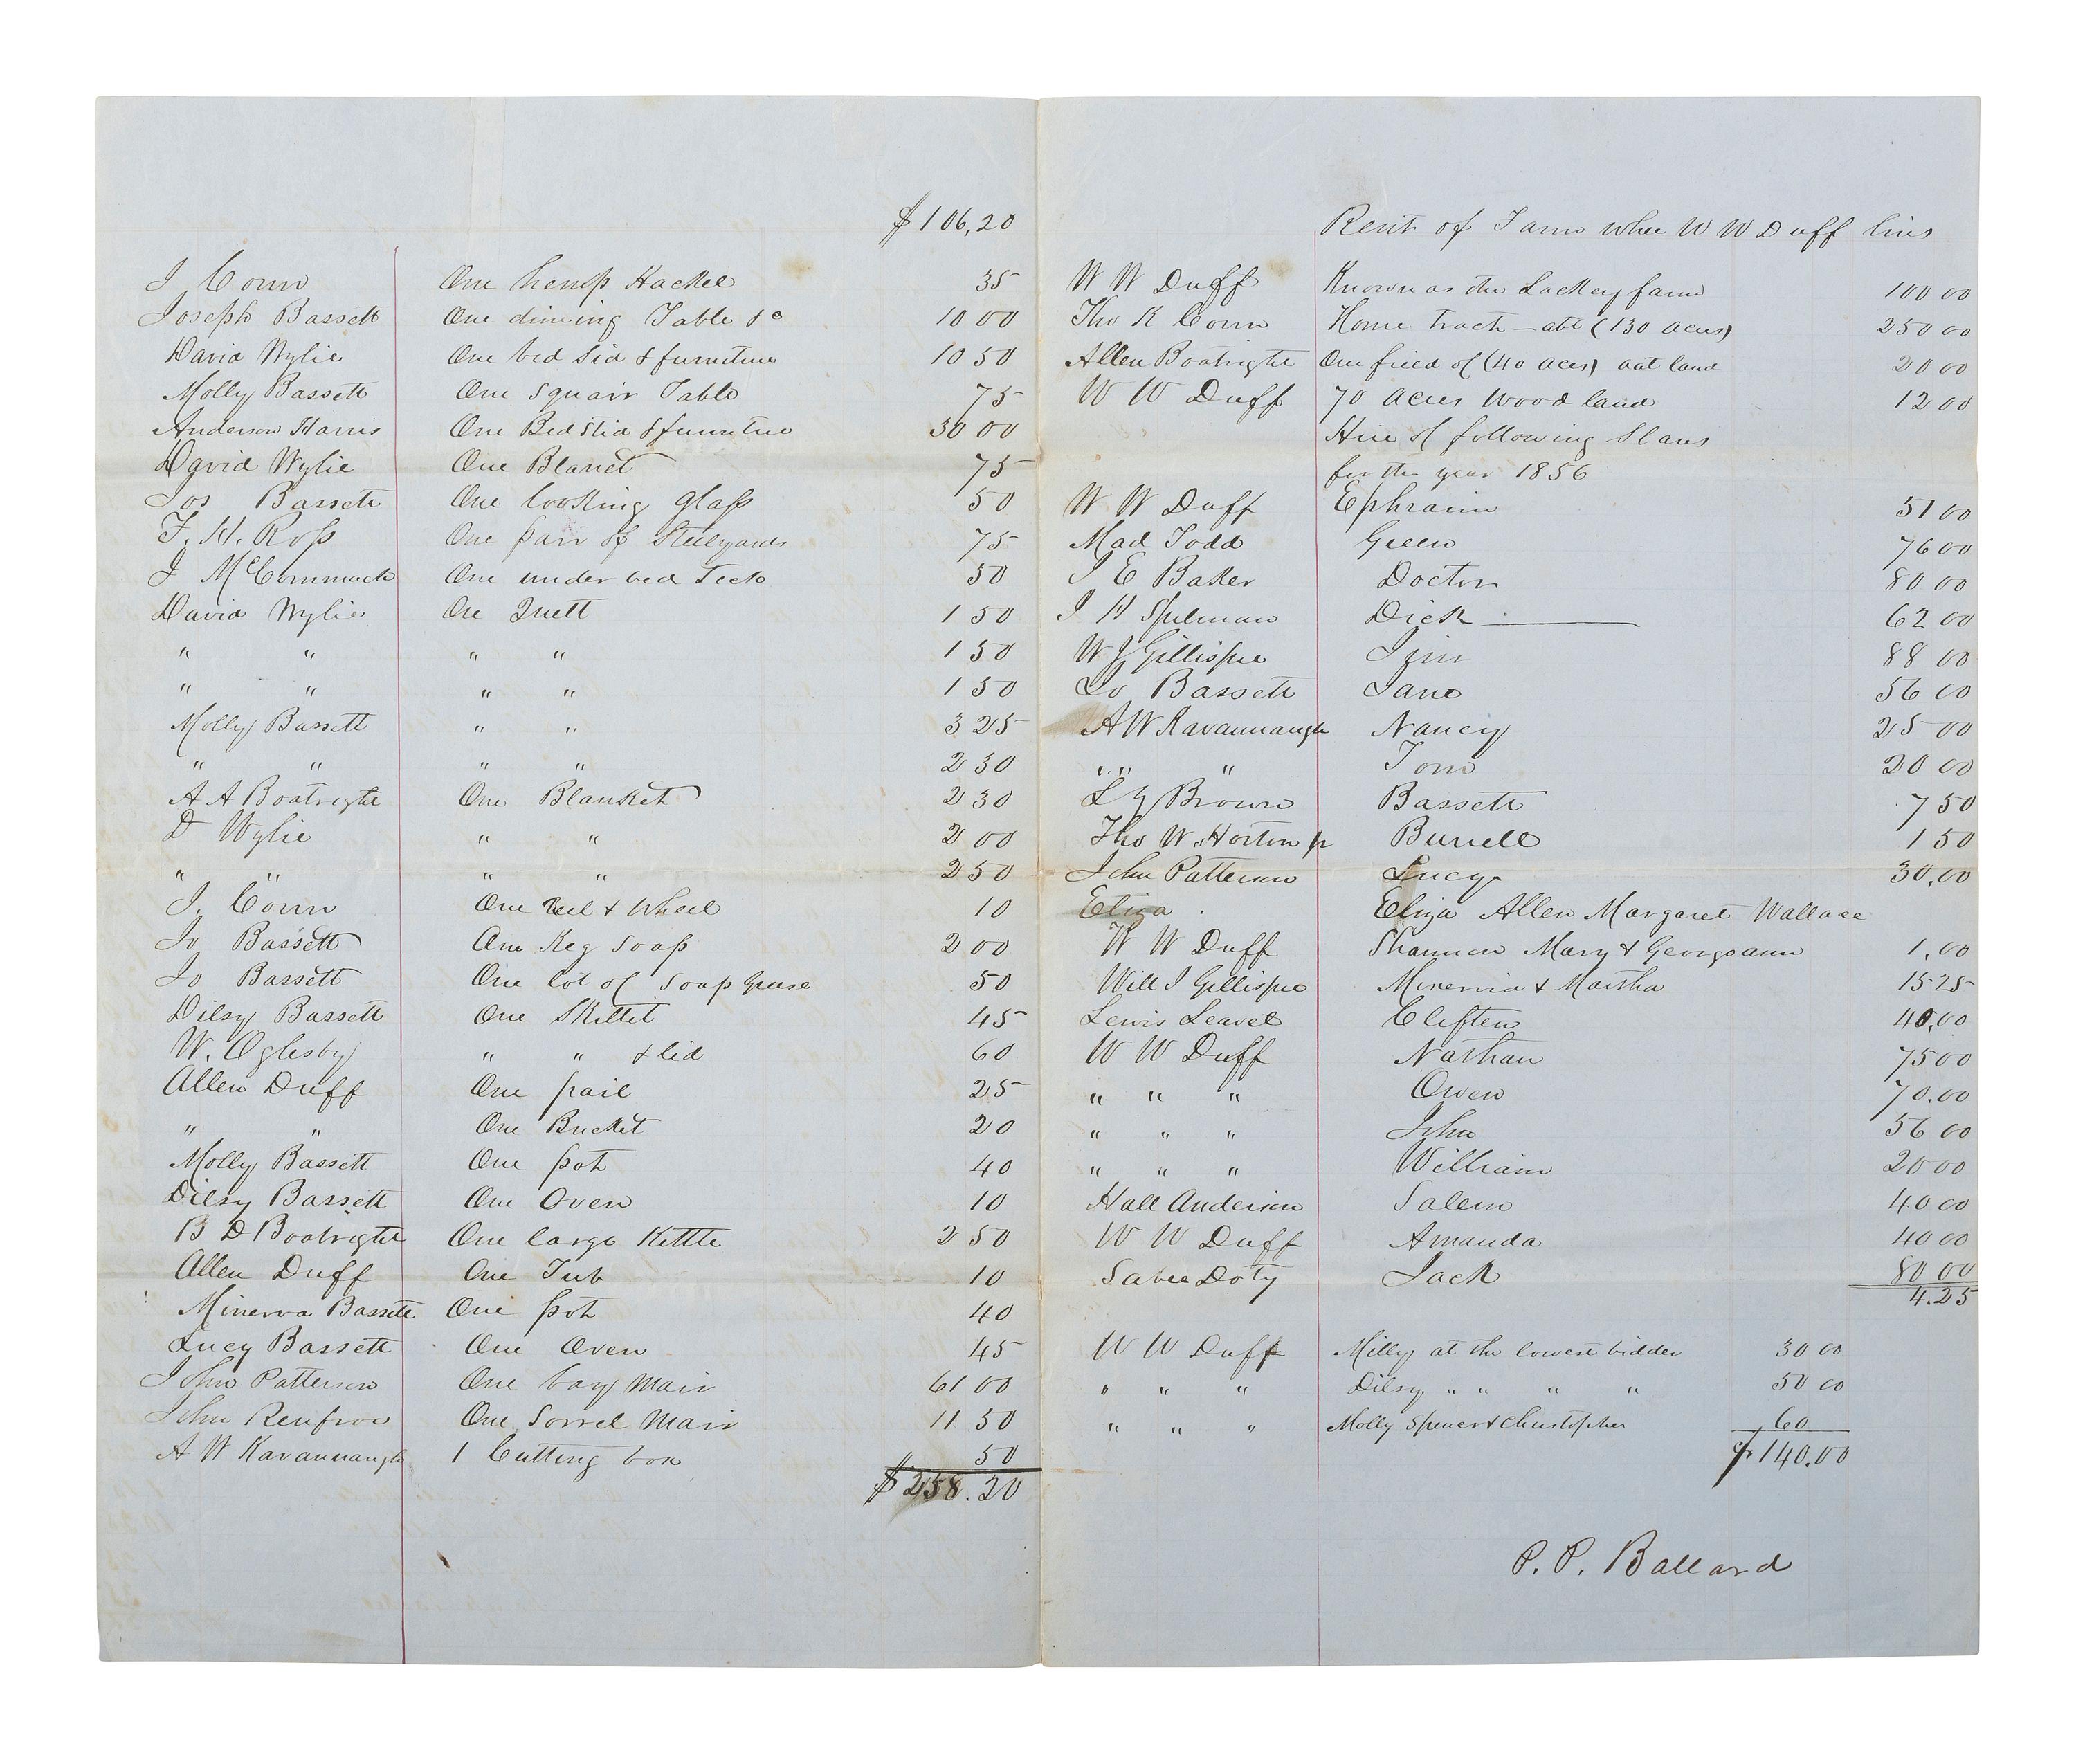 $106,20
J Conn One hemp Hackel 35
Joseph Bassett One dinning Table &c 10 00
David Wylie One bed Sid & furniture 10 50
Molly Bassett One Squair Table 75
Anderson Harris One Bed Stid & furnitue 30 00
David Wylie One Blanet 75
Jos Bassett One looking glass 50
F. H. Ross One pair of Steelyards 75
J McCormmack One under bed Teck 50
David Wylie One Quelt 1 50
" " " " 1 50
" " " " 1 50
Molly Bassett " " 3 25
" " " " 2 30
A A Boatright One Blanket 2 30
D Wylie " " 2 00
" " " " 2 50
J. Conn One Reel & Wheel 10
Jo Bassett One Keg Soap 2 00
Jo Bassett One lot of Soap Grease 50
Dilsy Bassett One Skittit 45
W. Oglesby " " & lid 60
Allen Duff One pail 25
" " One Bucket 20
Molly Bassett One pot 40
Dilsy Bassett One Oven 10
B D Boatright One large Kettle 2 50
Allen Duff One Tub 10
Minerva Bassett One pot 40
Lucy Bassett One Oven 45
John Patterson One bay Mair 61 00
John Renfrow One Sorrel Mair 11 50
A W Kavannaugh 1 Cutting box 50
$258.20
Rent of Farm whee W W Duff lives
W W Duff Known as the Lackey farm 100 00
Tho K Conn Home tract - abt (130 acres) 250 00
Allen Boatright One field of (40 aces) oat land 20 00
W W Duff 70 acres Wood land 12 00
Hire of following Slaves
for the year 1856
W W Duff Ephraim 51 00
Mad Todd Green 76 00
J E Baker Doctor 80 00
J H Spilman Dick 62 00
W J Gillispie Jim 88 00
Jo Bassett Jane 56 00
A W Kavannaugh Nancy 25 00
" " " Tom 20 00
Brown Bassett 7 50
Tho W. Horton Jr Burrell 1 50
John Patterson Lucy 30,00
Eliza Eliza Allen Margaret Wallace
W W Duff Shannon Mary & Georgeann 1,00
Will J Gillispie Minervia & Martha 15 25
Lewis Leavel Cliften 40,00
W W Duff Nathan 75 00
" " " Owen 70.00
" " " John 56 00
" " " William 20 00
Hall Anderson Salem 40 00
W W Duff Amanda 40 00
Doty Jack 80 00
4.25
W W Duff Milly at the lowest bidder 30 00
" " " Dilsy " " " " 50 00
" " " Molly Spencer & Christopher 60
$140.00
P. P. Ballard